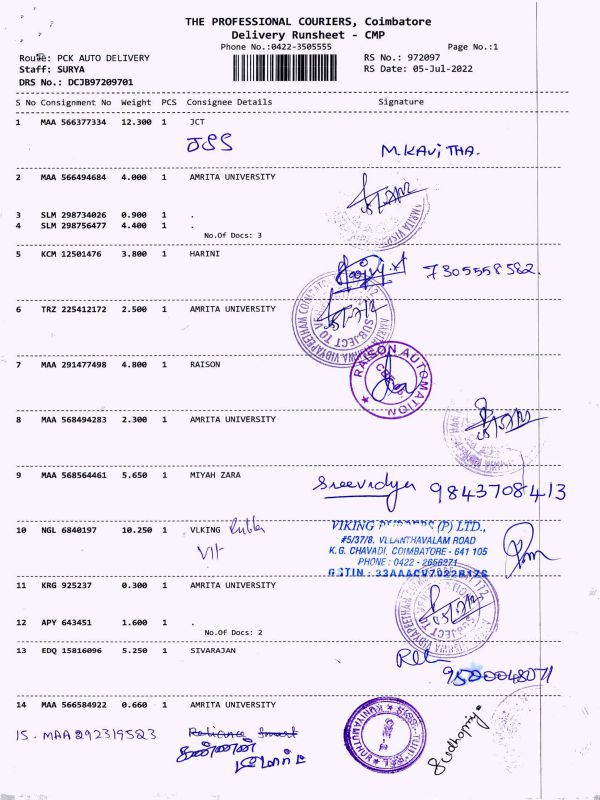 THE PROFESSIONAL COURIERS, Coimbatore
Delivery Runsheet - CMP
Phone No.:0422-3505555 Page No.:1
Route: PCK AUTO DELIVERY RS No.: 972097
Staff: SURYA RS Date: 05-Jul-2022
DRS No.: DCJB97209701
S No Consignment No Weight PCS Consignee Details Signature
1 MAA 566377334 12.300 1 JCT
M.KAVITHA.
2 MAA 566494684 4.000 1 AMRITA UNIVERSITY
3 SLM 298734026 0.900 1 .
4 SLM 298756477 4.400 1 .
No.Of Docs: 3
5 KCM 12501476 3.800 1 HARINI
7305558582.
6 TRZ 225412172 2.500 1 AMRITA UNIVERSITY
7 MAA 291477498 4.800 1 RAISON
RAISON AUTOMATION
8 MAA 568494283 2.300 1 AMRITA UNIVERSITY
9 MAA 568564461 5.650 1 MIYAH ZARA
Sreevidya 9843708413
10 NGL 6840197 10.250 1 VLKING
VIKING (P) LTD.,
#5/37/8, VELANTHAVALAM ROAD
K.G. CHAVADI, COIMBATORE - 641 105
PHONE : 0422 - 2656271
11 KRG 925237 0.300 1 AMRITA UNIVERSITY
12 APY 643451 1.600 1 .
No.Of Docs: 2
13 EDQ 15816096 5.250 1 SIVARAJAN
14 MAA 566584922 0.660 1 AMRITA UNIVERSITY
15. MAA 292319523 Reliance Smart